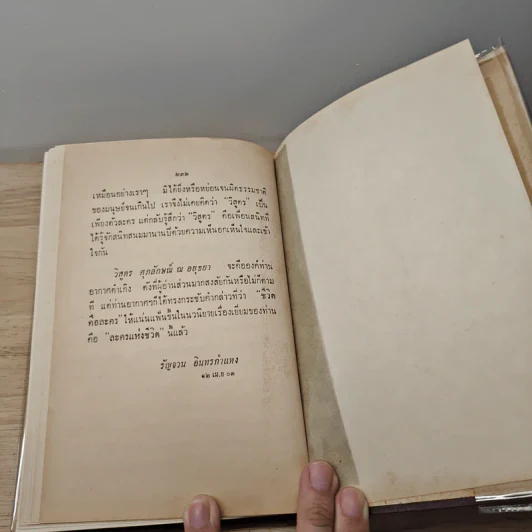 ๒๓๒
เหมือนอย่างเราๆ มิได้ยิ่งหรือหย่อนจนผิดธรรมชาติ
ของมนุษย์จนเกินไป เราจึงไม่เคยคิดว่า "วิสูตร" เป็น
เพียงตัวละคร แต่กลับรู้สึกว่า "วิสูตร" คือเพื่อนสนิทที่
ได้รู้จักสนิทสนมมานานปีด้วยความเห็นอกเห็นใจและเข้า
ใจกัน
วิสูตร ศุภลักษณ์ ณ อยุธยา จะคือองค์ท่าน
อากาศดำเกิง ดังที่ผู้อ่านส่วนมากสงสัยกันหรือไม่ก็ตาม
ที แต่ท่านอากาศฯก็ได้ทรงกระชับคำกล่าวที่ว่า "ชีวิต
คือละคร" ให้แน่นแฟ้นขึ้นในนวนิยายเรื่องเยี่ยมของท่าน
คือ "ละครแห่งชีวิต" นี้แล้ว
รัญจวน อินทรกำแหง
๑๒ เม.ย ๐๓